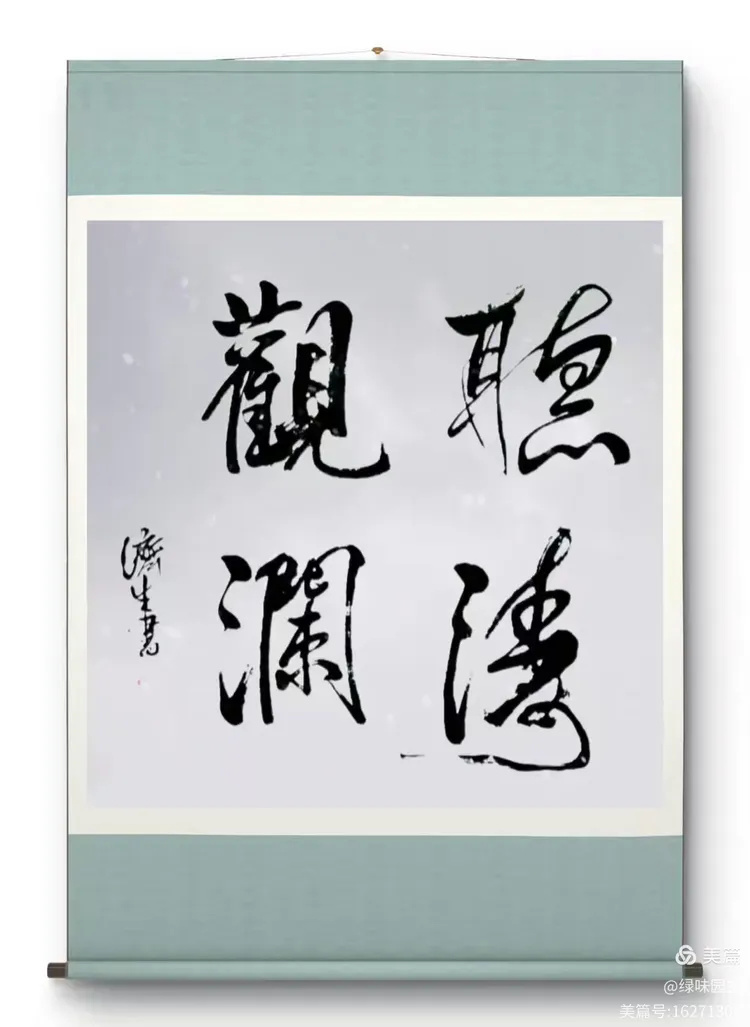 聽濤
觀瀾
濟生書
美篇
@绿味园
美篇号:1627130